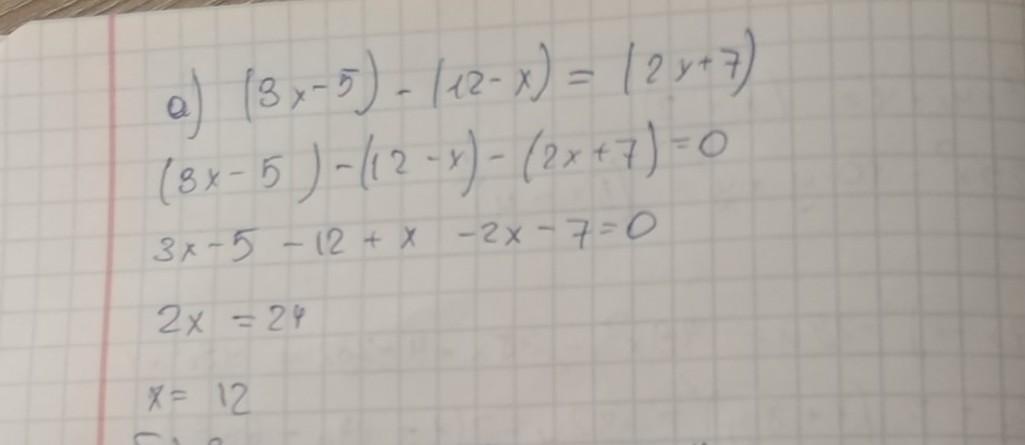 а) (3x-5) - (12-x) = (2x+7)
(3x-5) - (12-x) - (2x+7) = 0
3x-5 - 12 + x - 2x - 7 = 0
2x = 24
x = 12